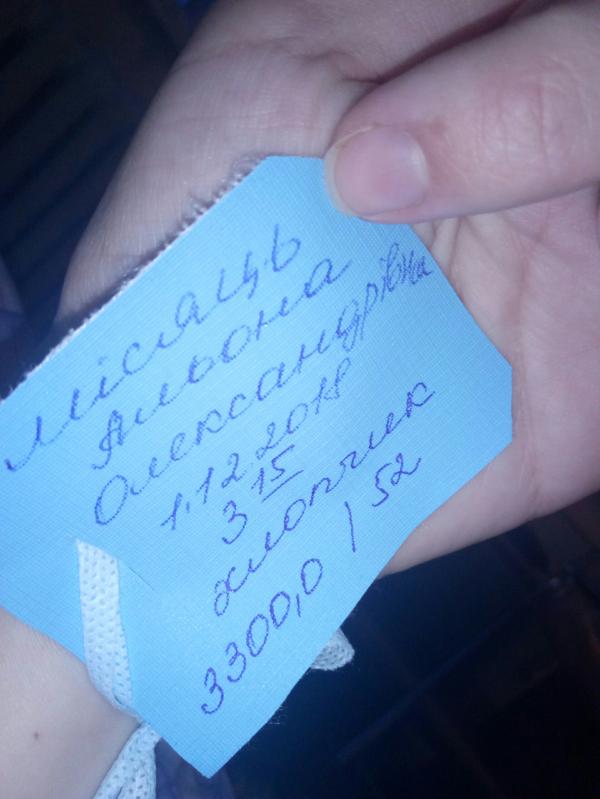 Місяць
Альона
Олександрівна
1.12.2018
3 15
хлопчик
3300,0 / 52